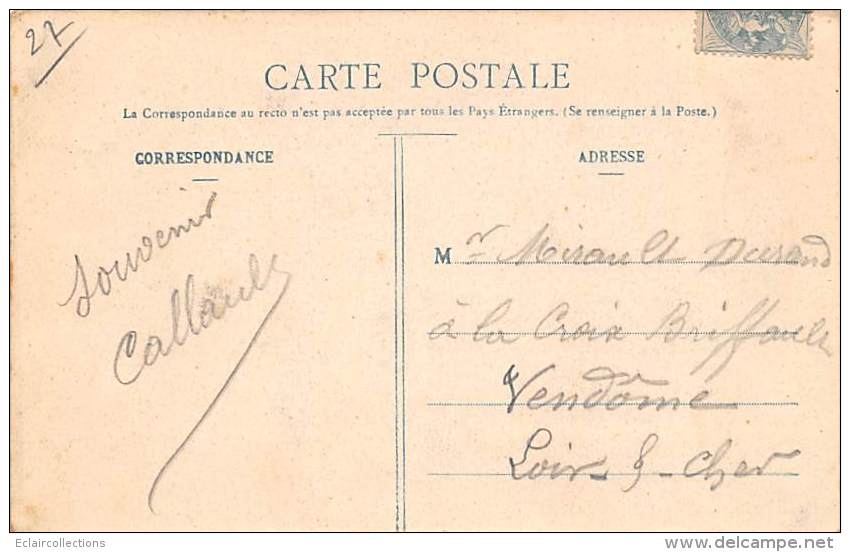 27
CARTE POSTALE
La Correspondance au recto n'est pas acceptée par tous les Pays Étrangers. (Se renseigner à la Poste.)
CORRESPONDANCE
Souvenir
Callault
ADRESSE
Mr Mirault Durand
à la Croix Briffault
Vendôme
Loir & Cher
Eclaircollections
www.delcampe.net